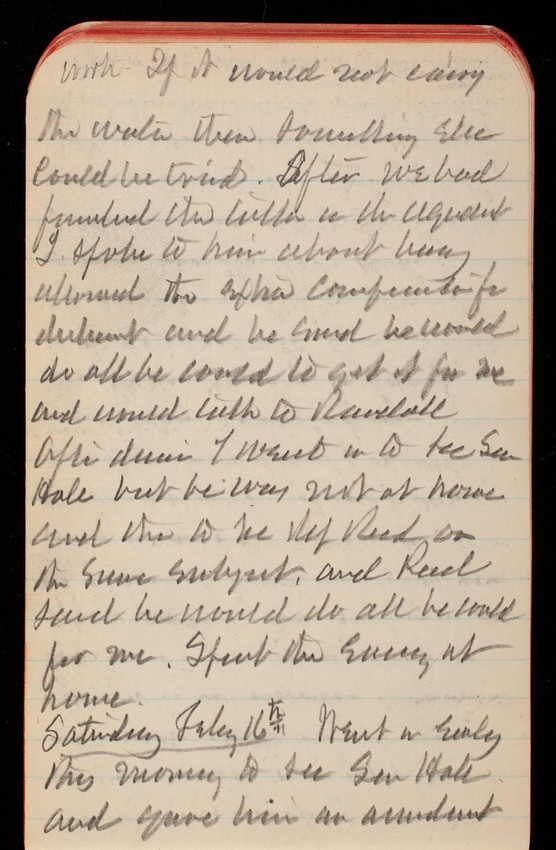 work. If it would not carry
the water then something Else
Could be tried. After we had
finished the talk in the aqueduct
I spoke to him about being
allowed the Extra Compensation for
disbursement and he said he would
do all he could to get it for me
and would talk to Randall
After dinner I went in to see Sen
Hale but he was not at home
and then to see Rep Reed on
the same subject, and Reed
said he would do all he could
for me. Spent the Evening at
home.
Saturday Feby 16th Went in Early
this morning to see Sen Hale
and gave him an amendment